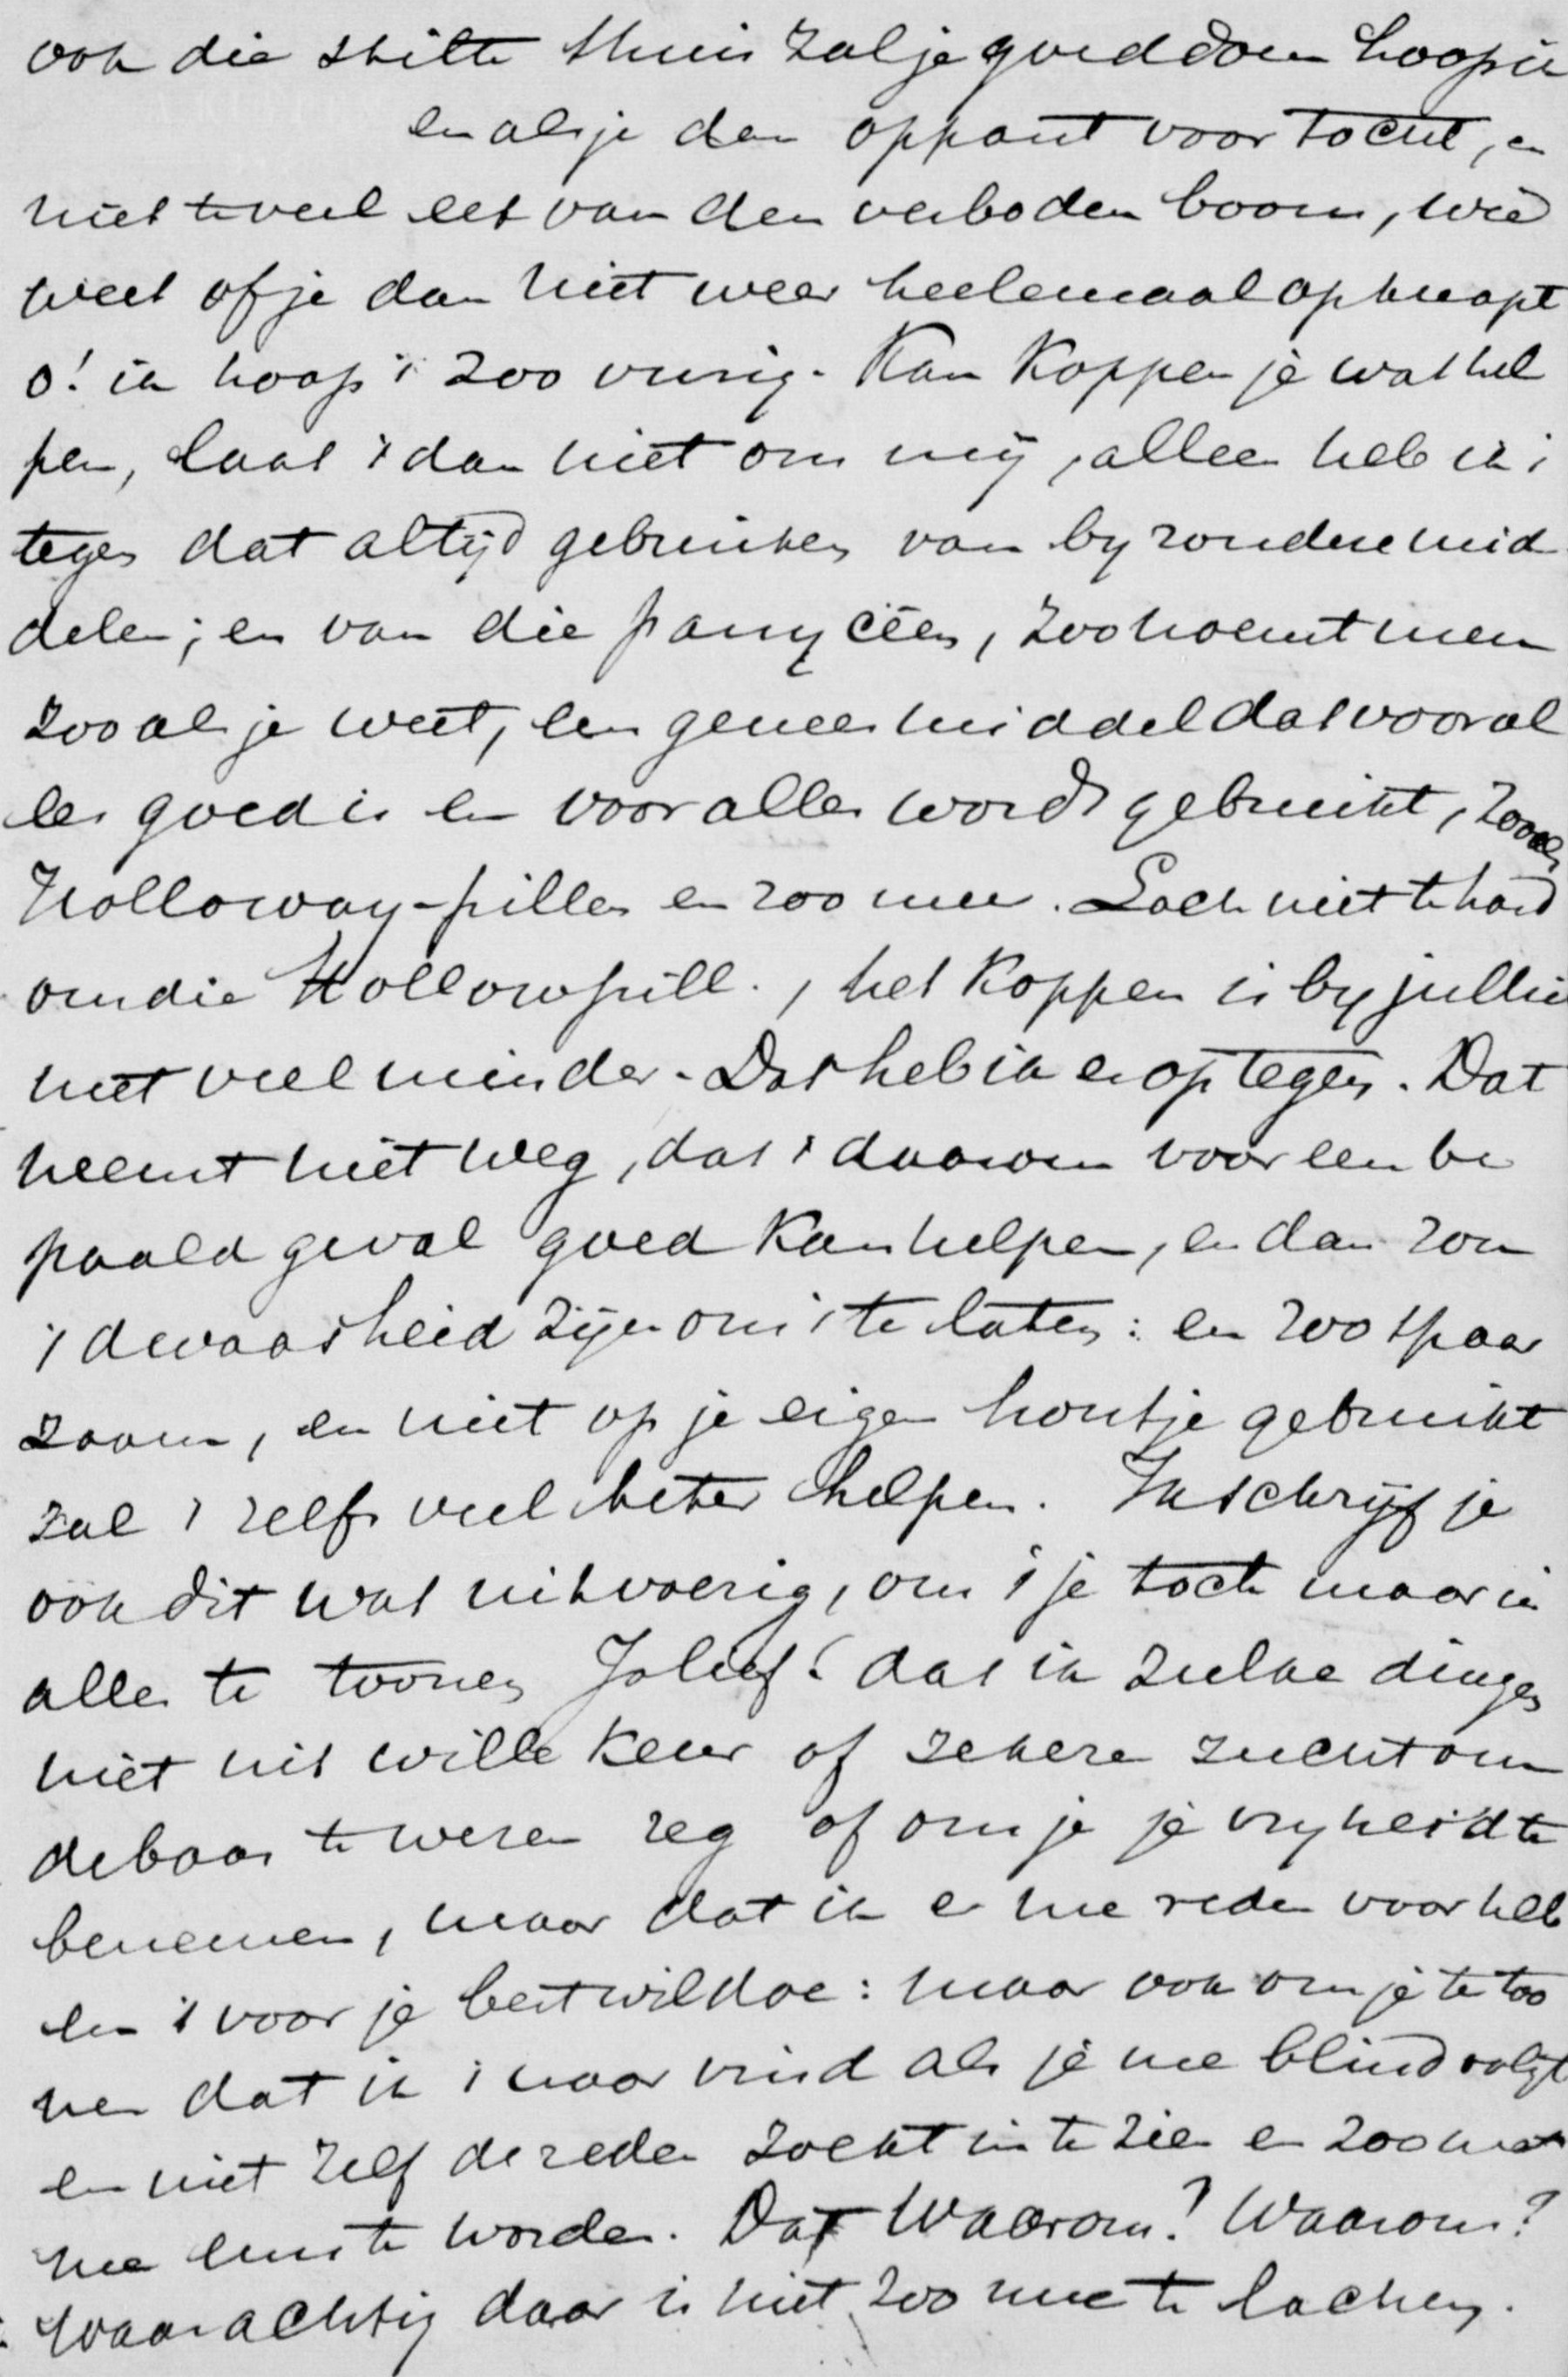 ook die stilte thuis zal je goed doen hoop ik
en als je dan oppast voor tocht, en
niet te veel eet van den verboden boom, wie
weet of je dan niet weer heelemaal opknapt
o! ik hoop 't zoo vurig. Kan Koppen je wat hel
pen, laat 't dan niet om mij, alleen heb ik 't
tegen dat altijd gebruiken van byzondere mid
delen; en van die panycéën, zoo noemt men
zooals je weet, een geneesmiddel dat voor al
les goed is en voor alles wordt gebruikt, zooals
Holloway-pillen en zoo meer. Lach niet te hard
om die Hollowpill., het Koppen is by jullie
niet veel minder. Dat heb ik er op tegen. Dat
neemt niet weg, dat 't daarom voor een be
paald geval goed kan helpen, en dan zou
't dwaasheid zijn om 't te laten: en zoo spaar
zaam, en niet op je eigen houtje gebruikt
zal 't zelfs veel beter helpen. Ik schrijf je
ook dit wat uitvoerig, om 't je toch maar in
alles te toonen Jolief! dat ik zulke dingen
niet uit willekeur of zekere zucht om
de baas te wezen zeg of om je je vryheid te
benemen, maar dat ik er me reden voor heb
en 't voor je bestwil doe: maar ook om je te too
nen dat ik 't naar vind als je me blind volgt
en niet zelf de reden zoekt in te zien en zoo met
me eens te worden. Dat Waarom? Waarom?
waarachtig daar is niet zoo mee te lachen.